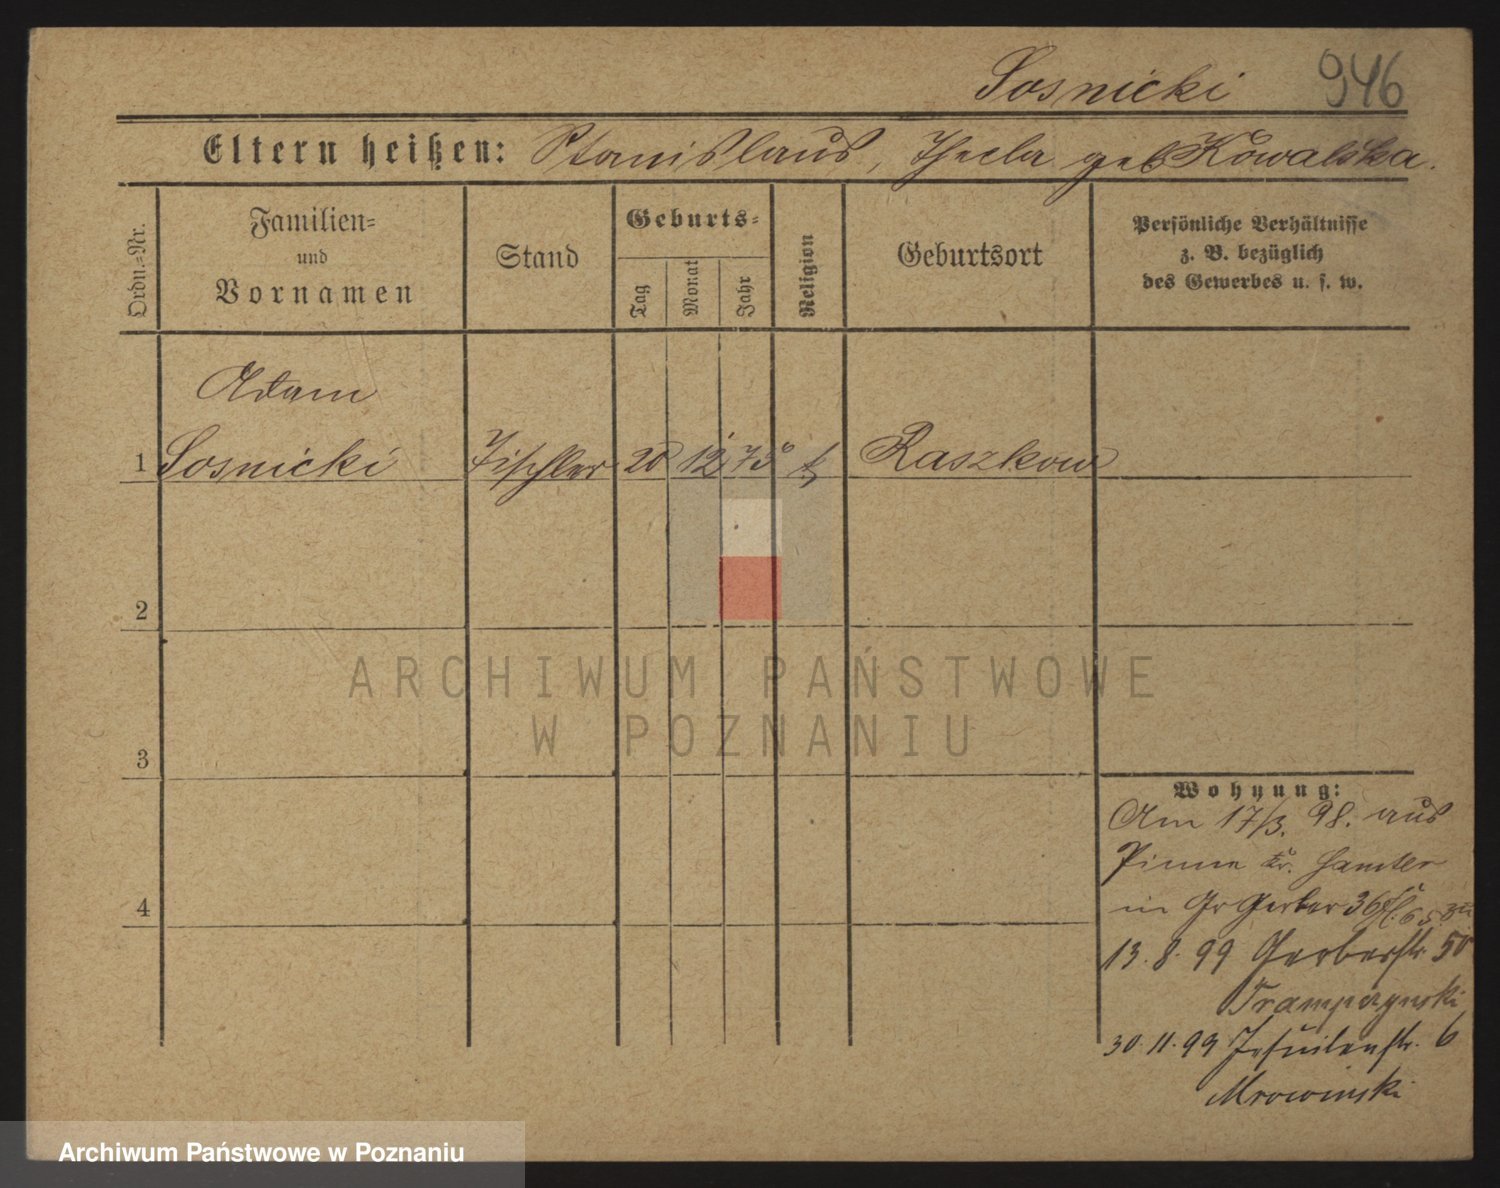 Sosnicki 946
Eltern heißen: Stanislaus, Thecla geb Kowalska.
Ordn.-Nr.
Familien-
und
Vornamen
Stand
Geburts-
Tag
Monat
Jahr
Religion
Geburtsort
Persönliche Verhältnisse
z. B. bezüglich
des Gewerbes u. s. w.
Adam
1 Sosnicki Tischler 20 12 75 k Raszkow
2
ARCHIWUM PAŃSTWOWE
W POZNANIU
3
Wohnung:
Am 17/3. 98. aus
Pinne Kr. Samter
4
in Gr Gerber 36
13. 8. 99 Gerberstr. 50
Trampczynski
30. 11. 99 Jesuitenstr. 6
Mrowinski
Archiwum Państwowe w Poznaniu